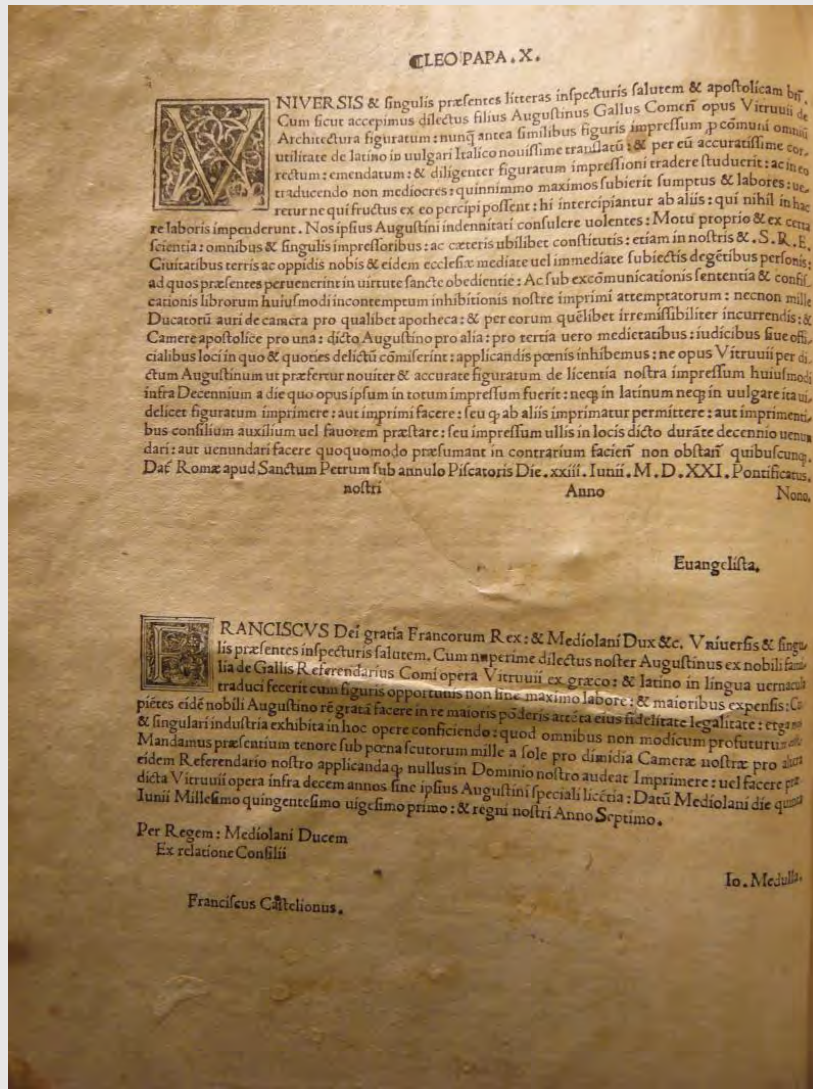 ⸿LEO PAPA.X.
VNIVERSIS & singulis præsentes litteras inspecturis salutem & apostolicam bñ.
Cum sicut accepimus dilectus filius Augustinus Gallus Comeñ opus Vitruuii de
Architectura figuratum: nunq̃ antea similibus figuris impressum ꝓ cõmuni omniũ
utilitate de latino in uulgari Italico nouissime translatũ: & per eũ accuratissime cor-
rectum: emendatum: & diligenter figuratum impressioni tradere studuerit: ac in eo
traducendo non mediocres: quinnimmo maximos subierit sumptus & labores: ue-
retur ne qui fructus ex eo percipi possent: hi intercipiantur ab aliis: qui nihil in hac
re laboris impenderunt. Nos ipsius Augustini indennitati consulere uolentes: Motu proprio & ex certa
scientia: omnibus & singulis impressoribus: ac cæteris ubilibet constitutis: etiam in nostris &.S.R.E.
Ciuitatibus terris ac oppidis nobis & eidem ecclesiæ mediate uel immediate subiectis degẽtibus personis:
ad quos præsentes peruenerint in uirtute sancte obedientie: Ac sub excõmunicationis sententia & confis-
cationis librorum huiusmodi incontemptum inhibitionis nostre imprimi attemptatorum: necnon mille
Ducatorũ auri de camera pro qualibet apotheca: & per eorum quẽlibet irremissibiliter incurrendis: &
Camere apostolice pro una: dicto Augustino pro alia: pro tertia uero medietatibus: iudicibus siue offi-
cialibus loci in quo & quoties delictũ cõmiserint: applicandis pœnis inhibemus: ne opus Vitruuii per di-
ctum Augustinum ut præfertur nouiter & accurate figuratum de licentia nostra impressum huiusmodi
infra Decennium a die quo opus ipsum in totum impressum fuerit: neqꝫ in latinum neqꝫ in uulgare ita ui-
delicet figuratum imprimere: aut imprimi facere: seu q̃ ab aliis imprimatur permittere: aut imprimenti-
bus consilium auxilium uel fauorem præstare: seu impressum ullis in locis dicto durãte decennio uenun
dari: aut uenundari facere quoquomodo præsumant in contrarium facieñ non obstañ quibuscunqꝫ.
Dat̃ Romæ apud Sanctum Petrum sub annulo Piscatoris Die.xxiii.Iunii.M.D.XXI.Pontificatus.
nostri Anno Nono.
Euangelista.
FRANCISCVS Dei gratia Francorum Rex: & Mediolani Dux &c. Vniuersis & singu-
lis præsentes inspecturis salutem. Cum nuperime dilectus noster Augustinus ex nobili fami
lia de Gallis Referendarius Comi opera Vitruuii ex græco: & latino in lingua uernacula
traduci fecerit cum figuris opportunis non sine maximo labore: & maioribus expensis: Cu
piẽtes eidẽ nobili Augustino rẽ gratã facere in re maioris põderis attẽta eius fidelitate legalitate: erga nos
& singulari industria exhibita in hoc opere conficiendo: quod omnibus non modicum profuturum
Mandamus præsentium tenore sub pœna scutorum mille a sole pro dimidia Cameræ nostræ pro altera
eidem Referendario nostro applicanda qꝫ nullus in Dominio nostro audeat Imprimere: uel facere præ
dicta Vitruuii opera infra decem annos sine ipsius Augustini speciali licẽtia: Datũ Mediolani die quinta
Iunii Millesimo quingentesimo uigesimo primo: & regni nostri Anno Septimo.
Per Regem: Mediolani Ducem
Ex relatione Consilii
Io. Medulla.
Franciscus Castelionus.